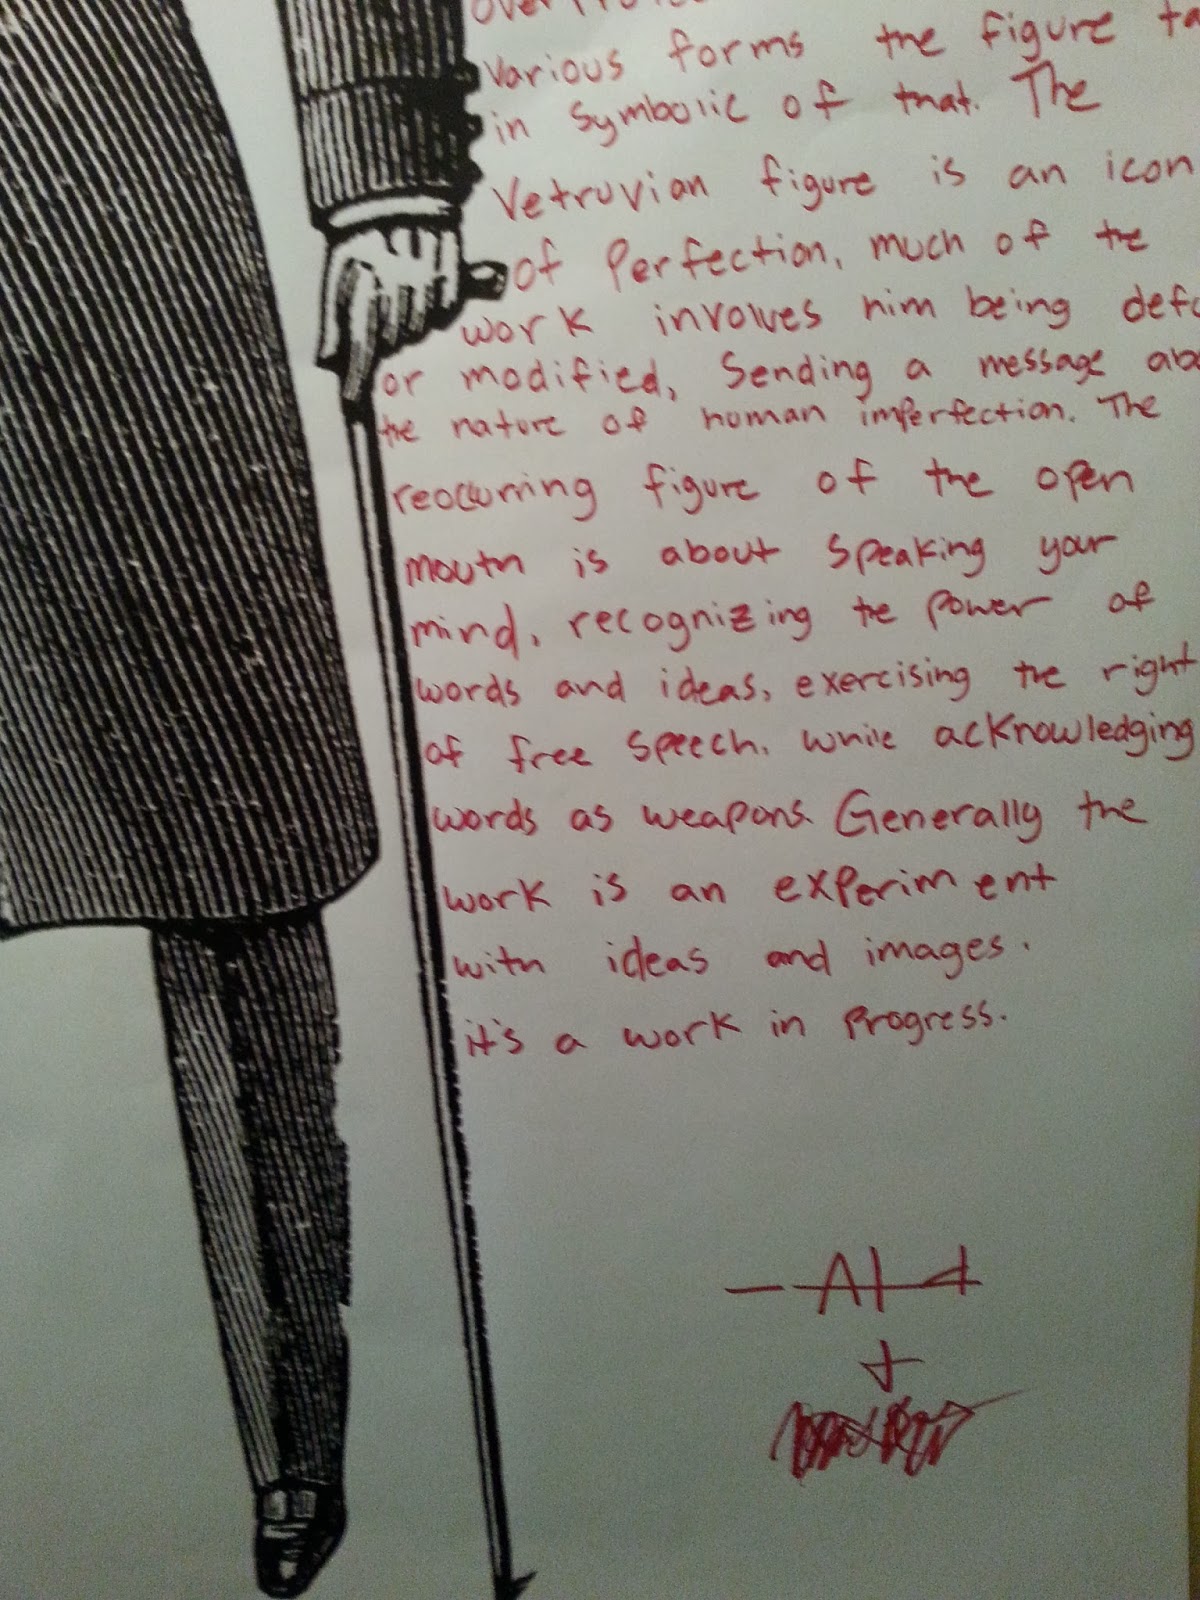 various forms the figure
in symbolic of that. The
Vetruvian figure is an icon
of Perfection, much of the
work involves him being
or modified, Sending a message
the nature of human imperfection. The
reoccurring figure of the open
mouth is about speaking your
mind, recognizing the power of
words and ideas, exercising the right
of free speech. while acknowledging
words as weapons. Generally the
work is an experiment
with ideas and images.
it's a work in progress.